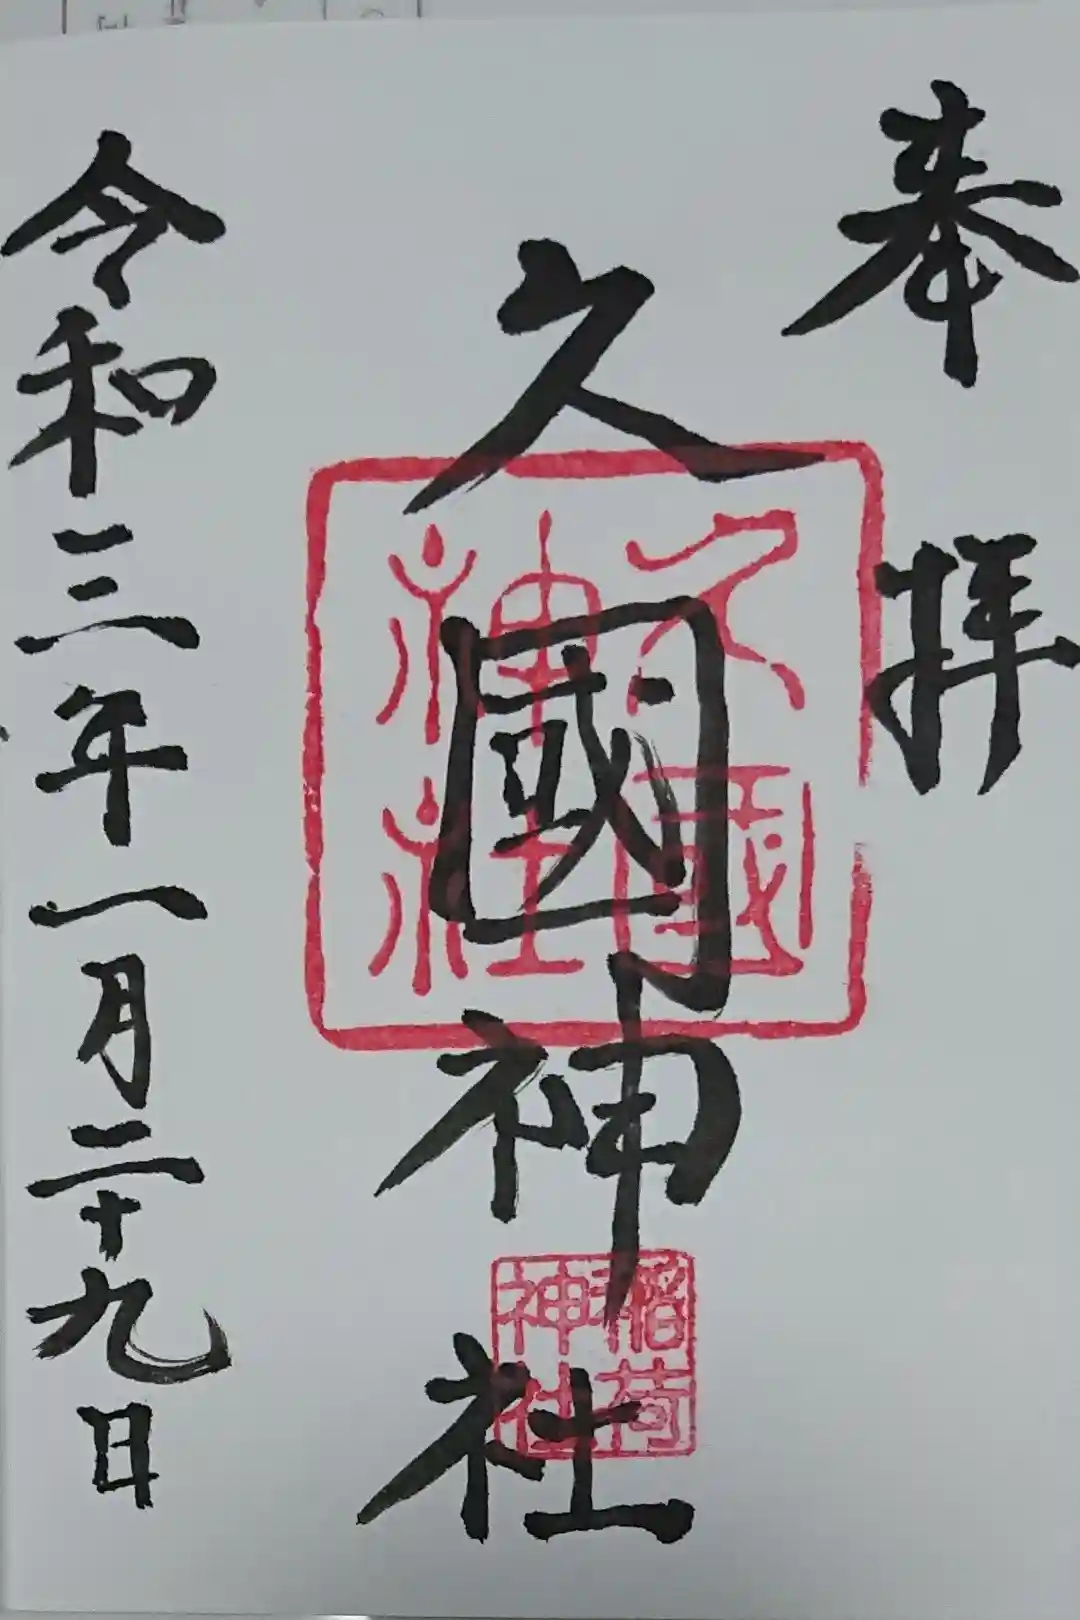 奉拝
久國神社
久國
神社
稲荷
神社
令和三年一月二十九日